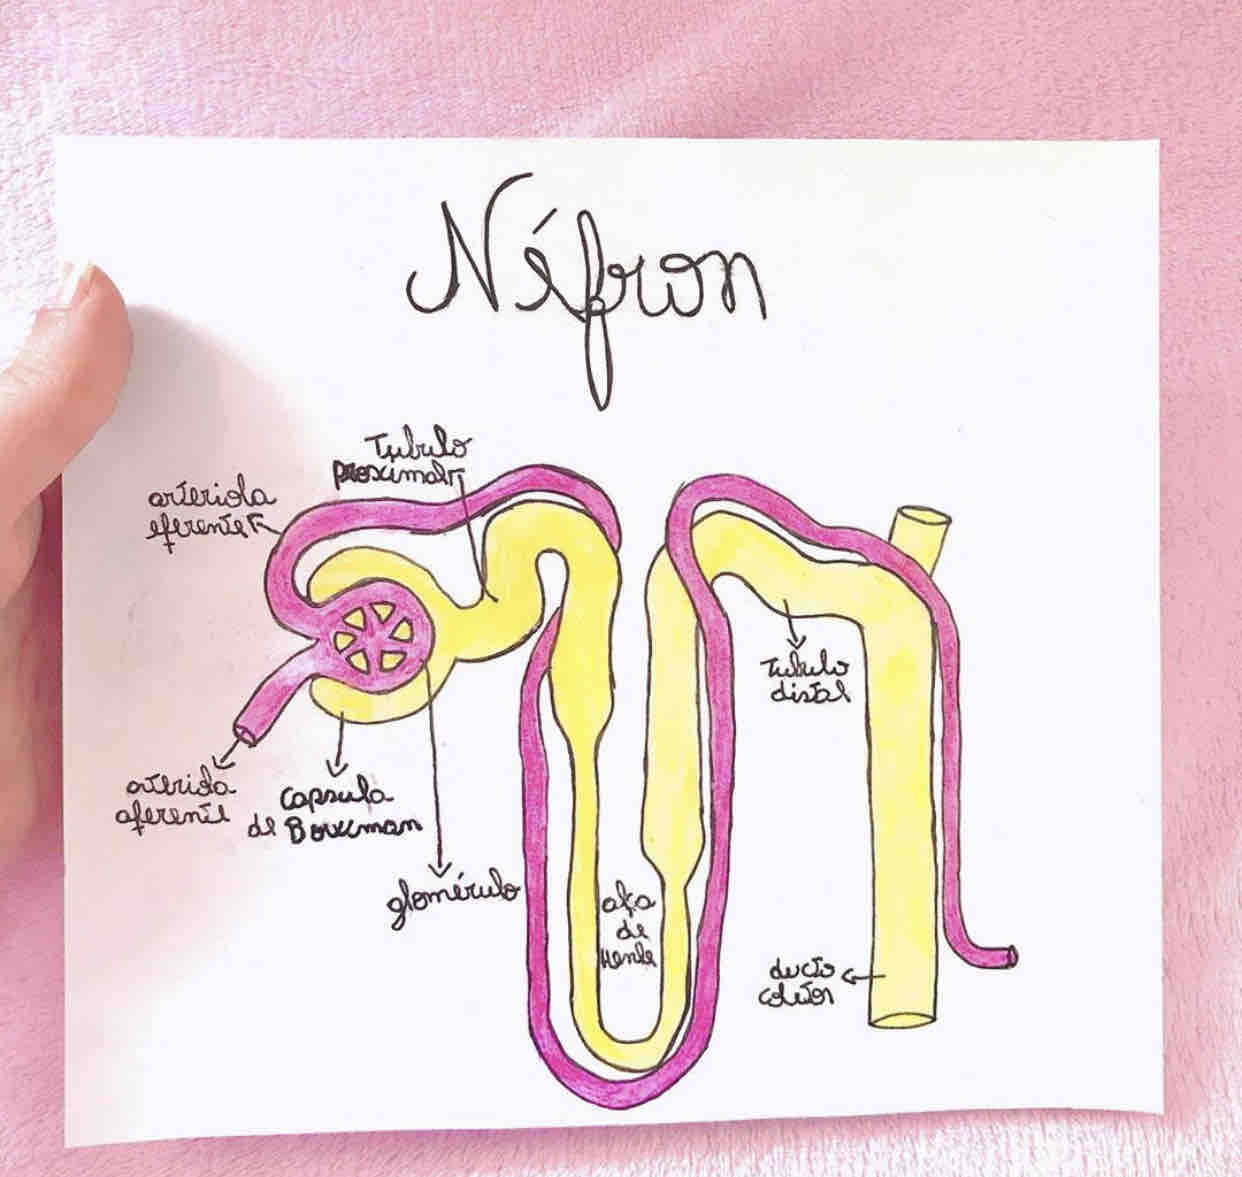 Néfron
Tubulo
proximal
arteriola
eferente
Tubulo
distal
arteriola
aferente
Capsula
de Bowman
glomérulo
alça
de
Henle
ducto
coletor